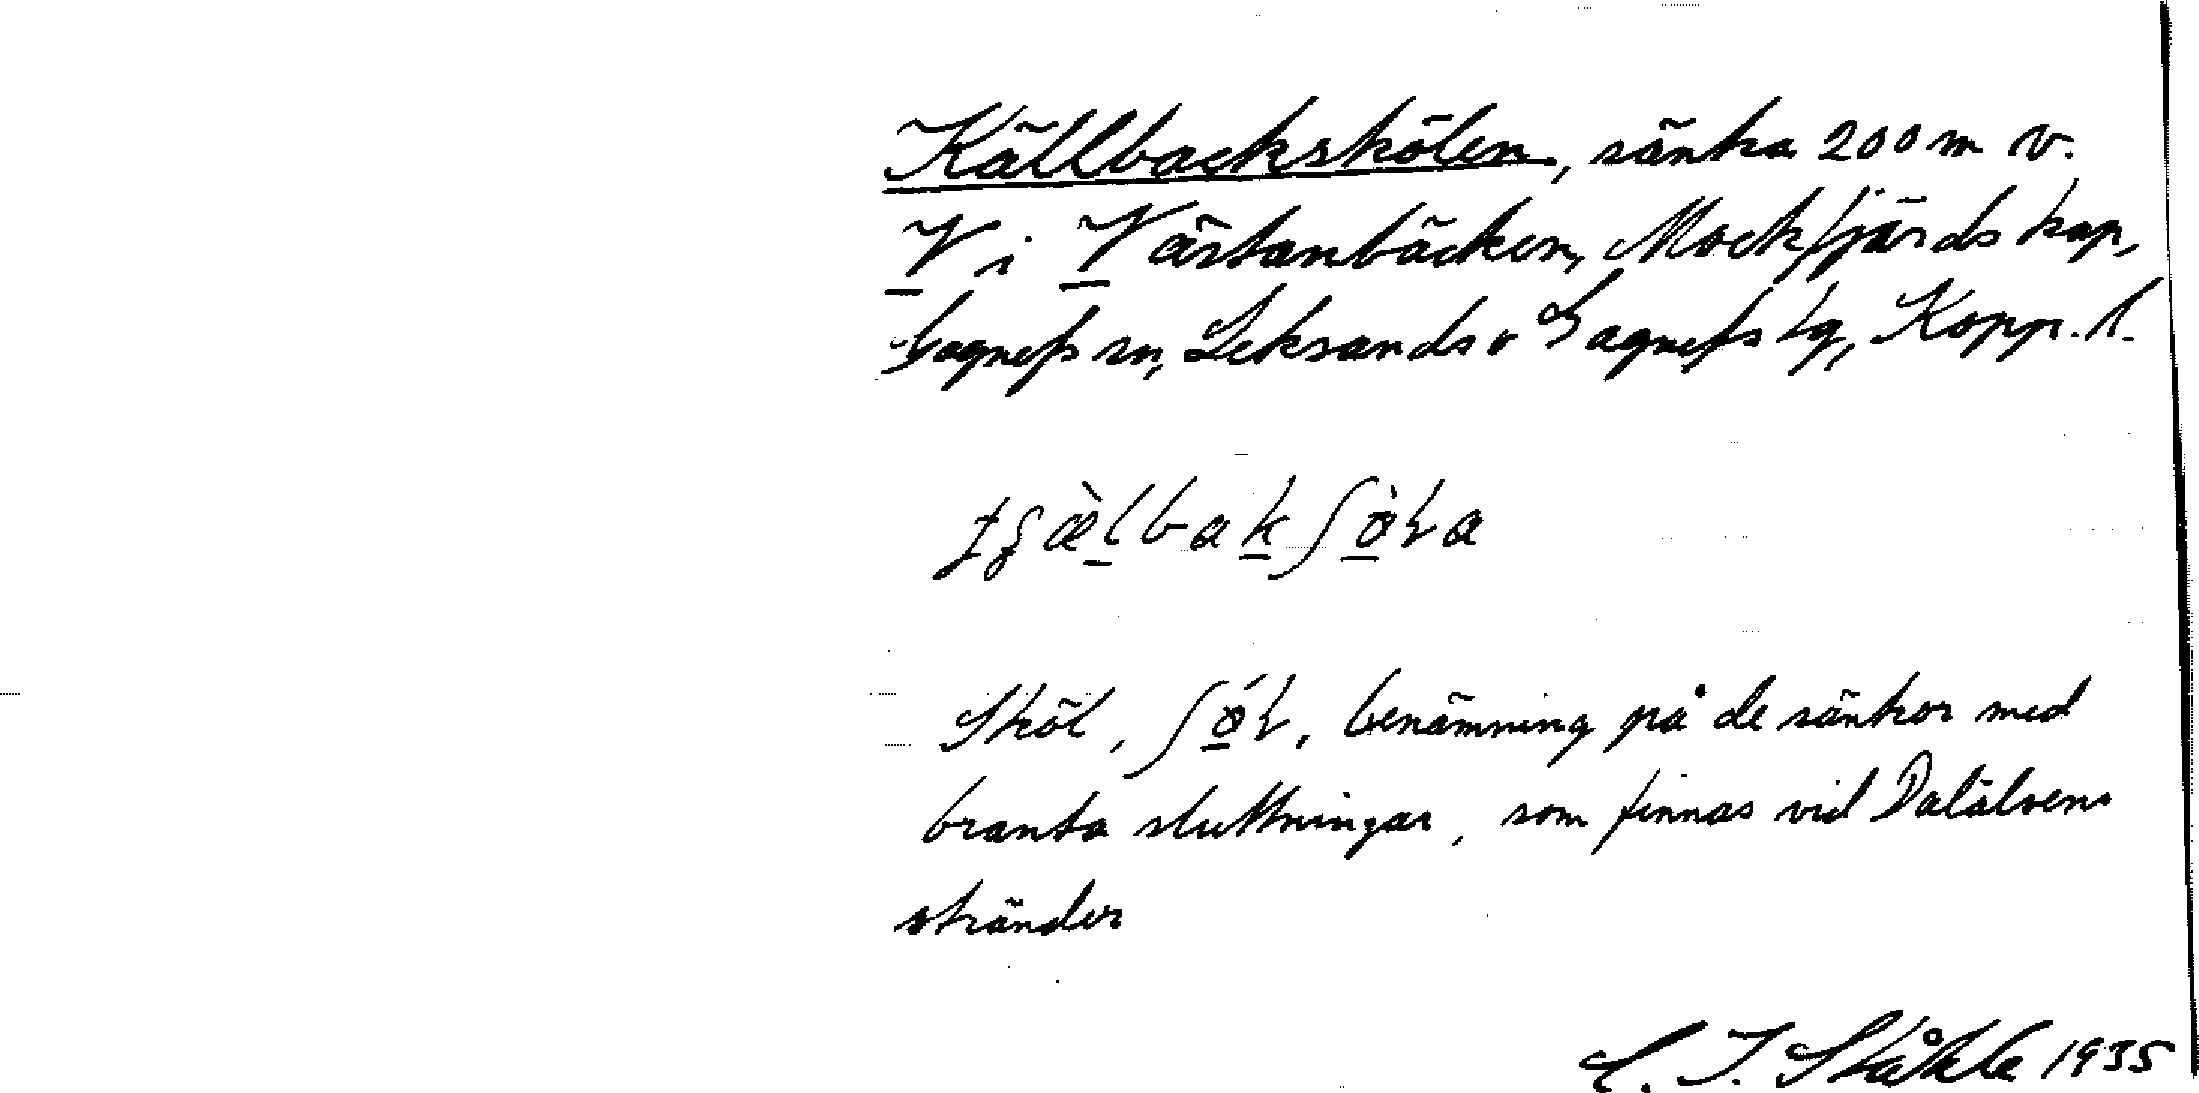 Källbackskölen, sänka 200 m v.
V i Västanbäcken, Mockfjärds kap,
Gagnefs sn, Leksands o Gagnefs tg, Kopp. l.
Sköl, benämning på de sänkor med
branta sluttningar, som finnas vid Dalälvens
stränder
C. I. Ståhle 1935